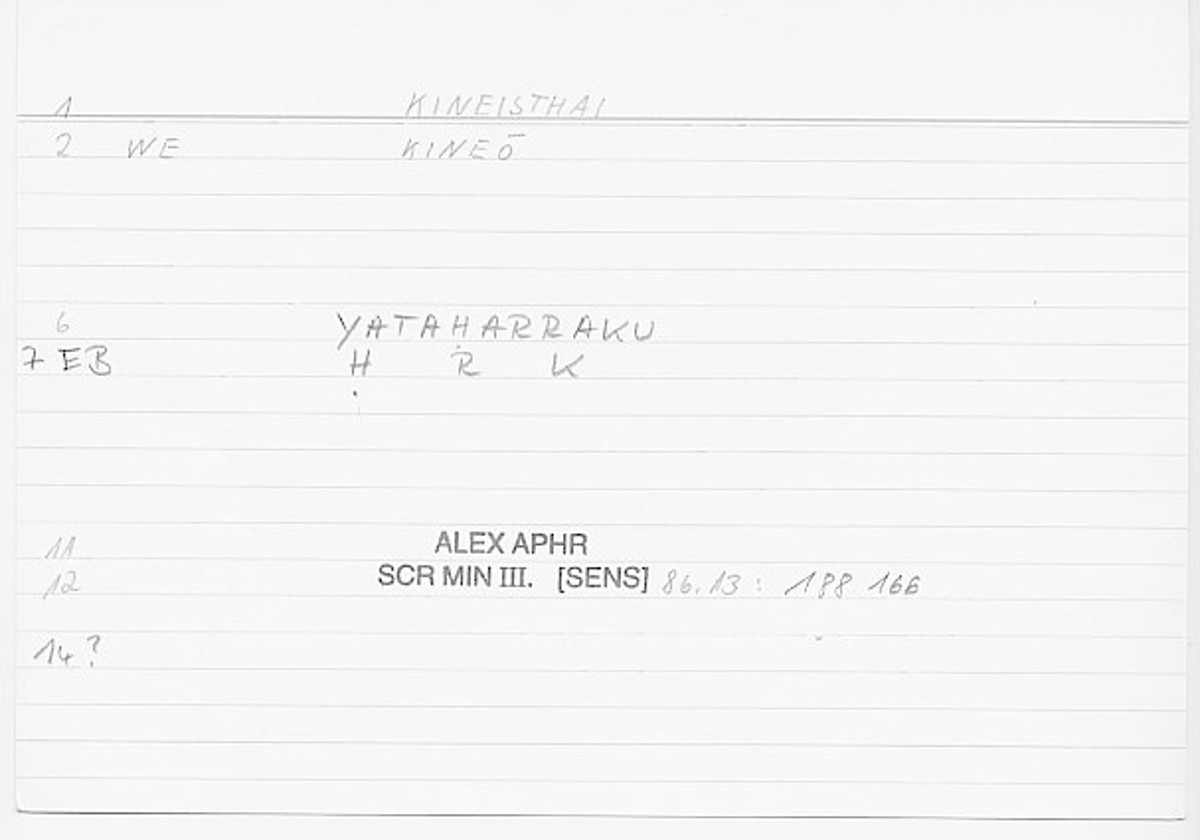 1 KINEISTHAI
2 WE KINEŌ
6 YATAḤARRAKU
7 EB Ḥ R K
11 ALEX APHR
12 SCR MIN III. [SENS] 86.13 : 188 166
14?